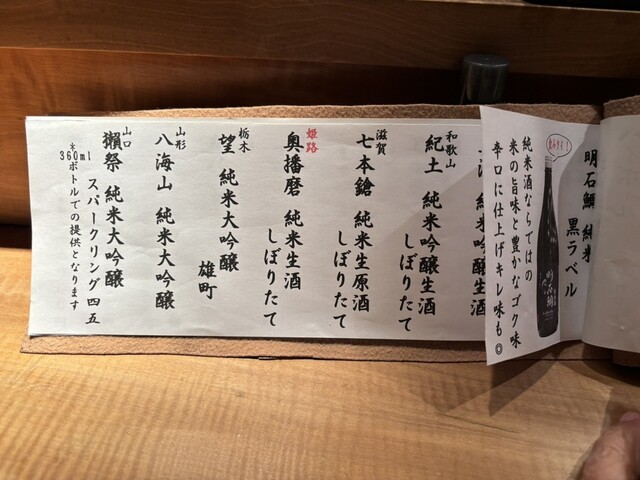 明石鯛 純米
黒ラベル
飲みやすい!
純米酒ならではの
米の旨味と豊かなゴク味
辛口に仕上げキレ味も◎
純米吟醸生酒
和歌山
紀土 純米吟醸生酒
しぼりたて
滋賀
七本鎗 純米生原酒
しぼりたて
姫路
奥播磨 純米生酒
しぼりたて
栃木
望 純米大吟醸
雄町
山形
八海山 純米大吟醸
山口
獺祭 純米大吟醸
スパークリング四五
*360mlボトルでの提供となります